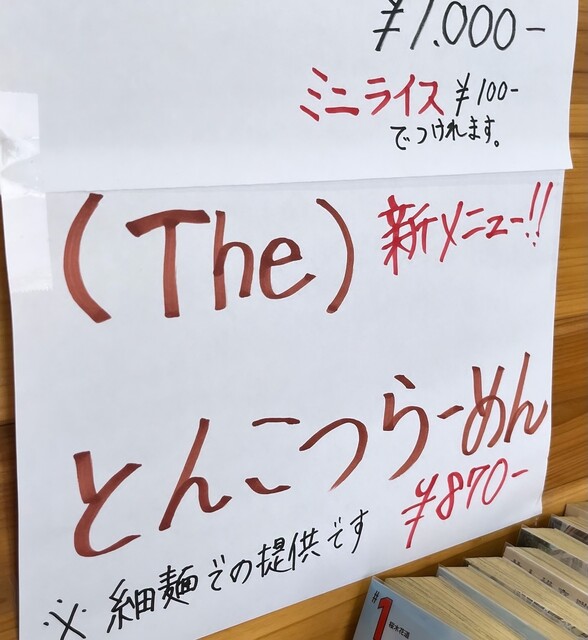 ¥1.000-
ミニライス ¥100-
でつけれます。
(The) 新メニュー!!
とんこつらーめん
¥870-
※ 細麺での提供です
#1
桜木花道